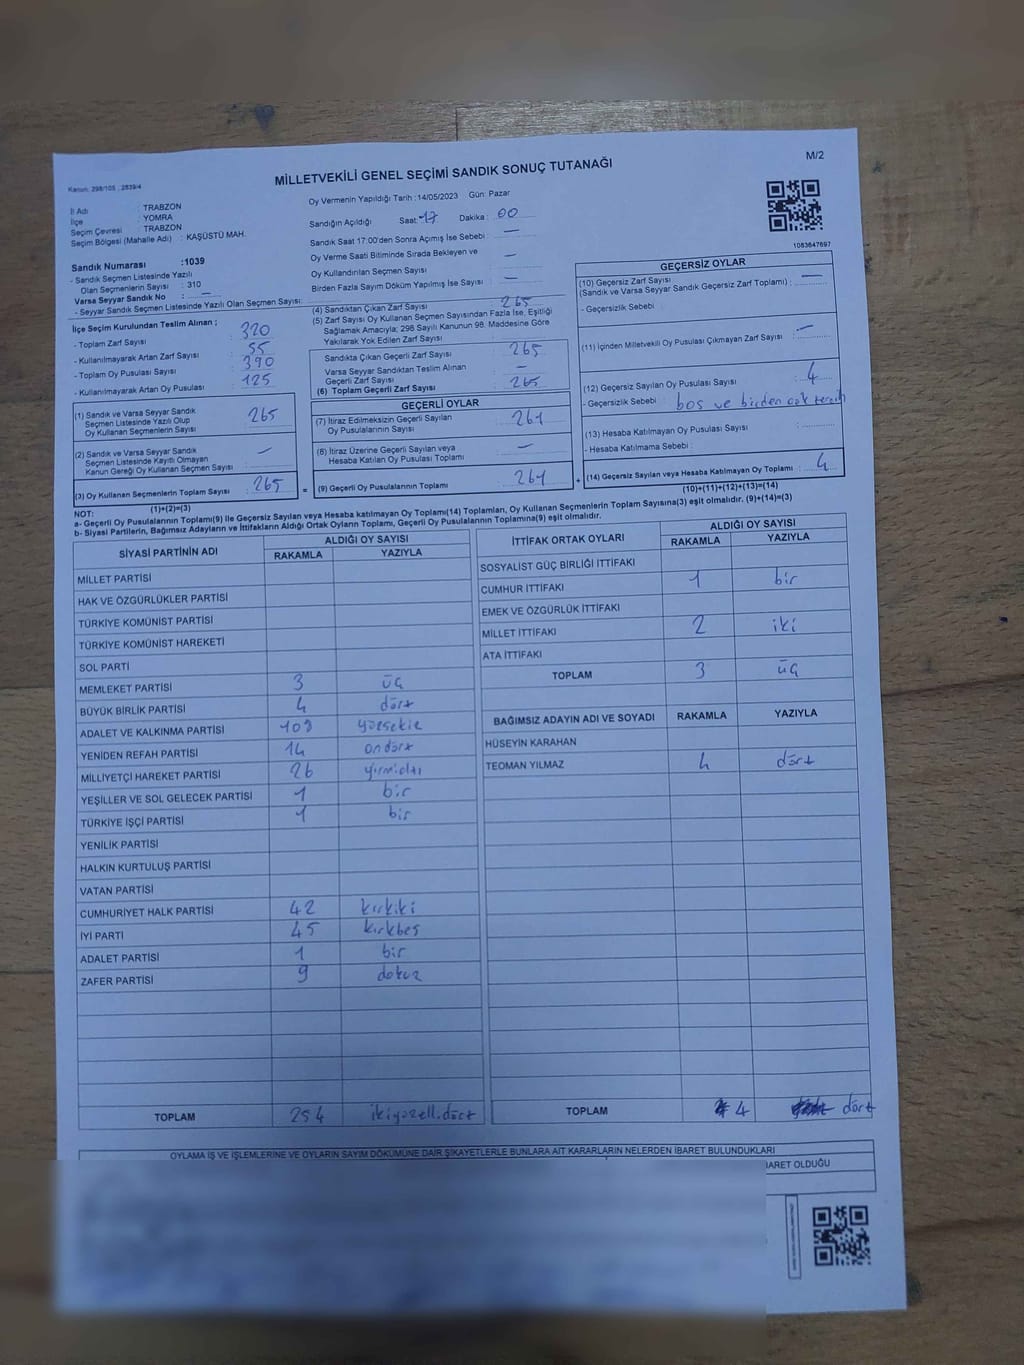 M/2
MİLLETVEKİLİ GENEL SEÇİMİ SANDIK SONUÇ TUTANAĞI
Kanun: 298/105 , 2839/4
İl Adı : TRABZON
İlçe : YOMRA
Seçim Çevresi : TRABZON
Seçim Bölgesi (Mahalle Adı) : KAŞÜSTÜ MAH.
Oy Vermenin Yapıldığı Tarih : 14/05/2023 Gün: Pazar
Sandığın Açıldığı Saat: 17 Dakika : 00
Sandık Saat 17:00'den Sonra Açımış İse Sebebi : —
Oy Verme Saati Bitiminde Sırada Bekleyen ve
Oy Kullandırılan Seçmen Sayısı : —
Birden Fazla Sayım Döküm Yapılmış İse Sayısı : —
1083647697
Sandık Numarası :1039
- Sandık Seçmen Listesinde Yazılı
Olan Seçmenlerin Sayısı : 310
Varsa Seyyar Sandık No : —
- Seyyar Sandık Seçmen Listesinde Yazılı Olan Seçmen Sayısı:
İlçe Seçim Kurulundan Teslim Alınan ;
- Toplam Zarf Sayısı : 320
- Kullanılmayarak Artan Zarf Sayısı : 55
- Toplam Oy Pusulası Sayısı : 390
- Kullanılmayarak Artan Oy Pusulası : 125
(1) Sandık ve Varsa Seyyar Sandık
Seçmen Listesinde Yazılı Olup
Oy Kullanan Seçmenlerin Sayısı : 265
(2) Sandık ve Varsa Seyyar Sandık
Seçmen Listesinde Kayıtlı Olmayan
Kanun Gereği Oy Kullanan Seçmen Sayısı : —
(3) Oy Kullanan Seçmenlerin Toplam Sayısı : 265
(1)+(2)=(3)
(4) Sandıktan Çıkan Zarf Sayısı : 265
(5) Zarf Sayısı Oy Kullanan Seçmen Sayısından Fazla İse, Eşitliği
Sağlamak Amacıyla; 298 Sayılı Kanunun 98. Maddesine Göre
Yakılarak Yok Edilen Zarf Sayısı :
Sandıkta Çıkan Geçerli Zarf Sayısı : 265
Varsa Seyyar Sandıktan Teslim Alınan
Geçerli Zarf Sayısı : —
(6) Toplam Geçerli Zarf Sayısı : 265
GEÇERLİ OYLAR
(7) İtiraz Edilmeksizin Geçerli Sayılan
Oy Pusulasının Sayısı : 261
(8) İtiraz Üzerine Geçerli Sayılan ve
Hesaba Katılan Oy Pusulası Toplamı : —
= (9) Geçerli Oy Pusulalarının Toplamı : 261 +
GEÇERSİZ OYLAR
(10) Geçersiz Zarf Sayısı
(Sandık ve Varsa Seyyar Sandık Geçersiz Zarf Toplamı) : —
- Geçersizlik Sebebi :
(11) İçinden Milletvekili Oy Pusulası Çıkmayan Zarf Sayısı : —
(12) Geçersiz Sayılan Oy Pusulası Sayısı : 4
- Geçersizlik Sebebi : boş ve birden çok tercih
(13) Hesaba Katılmayan Oy Pusulası Sayısı :
- Hesaba Katılmama Sebebi :
(14) Geçersiz Sayılan veya Hesaba Katılmayan Oy Toplamı : 4
(10)+(11)+(12)+(13)=(14)
NOT:
a- Geçerli Oy Pusulalarının Toplamı(9) ile Geçersiz Sayılan veya Hesaba katılmayan Oy Toplamı(14) Toplamları, Oy Kullanan Seçmenlerin Toplam Sayısına(3) eşit olmalıdır. (9)+(14)=(3)
b- Siyasi Partilerin, Bağımsız Adayların ve İttifakların Aldığı Ortak Oyların Toplamı, Geçerli Oy Pusulalarının Toplamına(9) eşit olmalıdır.
SİYASİ PARTİNİN ADI ALDIĞI OY SAYISI
RAKAMLA YAZIYLA
MİLLET PARTİSİ
HAK VE ÖZGÜRLÜKLER PARTİSİ
TÜRKİYE KOMÜNİST PARTİSİ
TÜRKİYE KOMÜNİST HAREKETİ
SOL PARTİ
MEMLEKET PARTİSİ 3 üç
BÜYÜK BİRLİK PARTİSİ 4 dört
ADALET VE KALKINMA PARTİSİ 108 yüzsekiz
YENİDEN REFAH PARTİSİ 14 ondört
MİLLİYETÇİ HAREKET PARTİSİ 26 yirmialtı
YEŞİLLER VE SOL GELECEK PARTİSİ 1 bir
TÜRKİYE İŞÇİ PARTİSİ 1 bir
YENİLİK PARTİSİ
HALKIN KURTULUŞ PARTİSİ
VATAN PARTİSİ
CUMHURİYET HALK PARTİSİ 42 kırkiki
İYİ PARTİ 45 kırkbeş
ADALET PARTİSİ 1 bir
ZAFER PARTİSİ 9 dokuz
TOPLAM 254 ikiyüzellidört
İTTİFAK ORTAK OYLARI ALDIĞI OY SAYISI
RAKAMLA YAZIYLA
SOSYALİST GÜÇ BİRLİĞİ İTTİFAKI
CUMHUR İTTİFAKI 1 bir
EMEK VE ÖZGÜRLÜK İTTİFAKI
MİLLET İTTİFAKI 2 iki
ATA İTTİFAKI
TOPLAM 3 üç
BAĞIMSIZ ADAYIN ADI VE SOYADI RAKAMLA YAZIYLA
HÜSEYİN KARAHAN
TEOMAN YILMAZ 4 dört
TOPLAM 4 dört
OYLAMA İŞ VE İŞLEMLERİNE VE OYLARIN SAYIM DÖKÜMÜNE DAİR ŞİKAYETLERLE BUNLARA AİT KARARLARIN NELERDEN İBARET BULUNDUKLARI
İBARET OLDUĞU